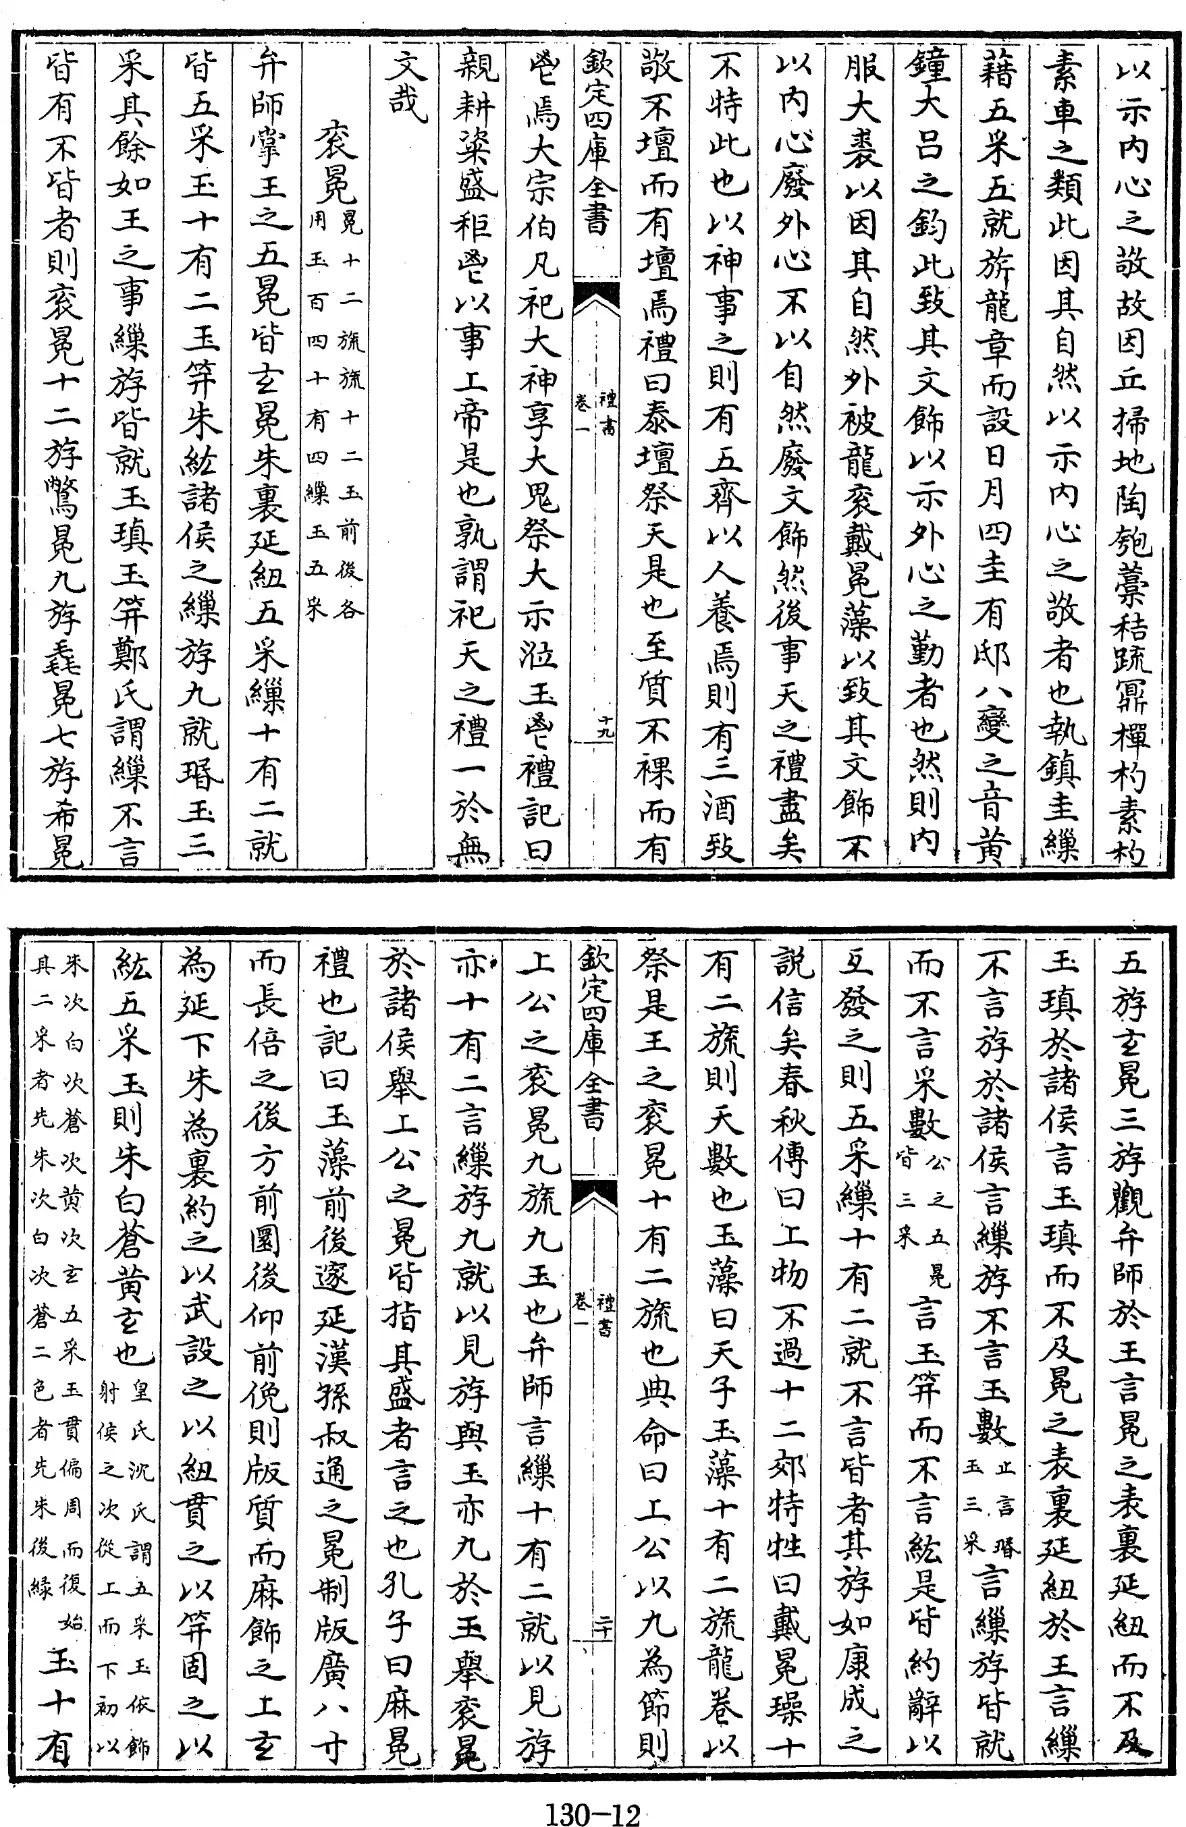 以示内心之敬故因丘掃地陶匏藁秸疏冪樿杓素杓
素車之類此因其自然以示内心之敬者也執鎮圭繅
藉五采五就旂龍章而設日月四圭有邸八變之音黄
鐘大吕之鈞此致其文飾以示外心之勤者也然則内
服大裘以因其自然外被龍衮戴冕藻以致其文飾不
以内心廢外心不以自然廢文飾然後事天之禮盡矣
不特此也以神事之則有五齊以人養焉則有三酒致
敬不壇而有壇焉禮曰泰壇祭天是也至質不祼而有
欽定四庫全書
禮書
卷一
十九
鬯焉大宗伯凡祀大神享大鬼祭大示涖玉鬯禮記曰
親耕粢盛秬鬯以事上帝是也孰謂祀天之禮一於無
文哉
衮冕冕十二旒旒十二玉前後各
用玉百四十有四繅玉五采
弁師掌王之五冕皆玄冕朱裏延紐五采繅十有二就
皆五采玉十有二玉笄朱紘諸侯之繅斿九就瑉玉三
采其餘如王之事繅斿皆就玉瑱玉笄鄭氏謂繅不言
皆有不皆者則衮冕十二斿鷩冕九斿毳冕七斿希冕
五斿玄冕三斿觀弁師於王言冕之表裏延紐而不及
玉瑱於諸侯言玉瑱而不及冕之表裏延紐於王言繅
不言斿於諸侯言繅斿不言玉數止言瑉
玉三采言繅斿皆就
而不言采數公之五冕
皆三采言玉笄而不言紘是皆約辭以
互發之則五采繅十有二就不言皆者其斿如康成之
説信矣春秋傳曰上物不過十二郊特牲曰戴冕璪十
有二旒則天數也玉藻曰天子玉藻十有二旒龍卷以
祭是王之衮冕十有二旒也典命曰上公以九為節則
欽定四庫全書
禮書
卷一
二十
上公之衮冕九旒九玉也弁師言繅十有二就以見斿
亦十有二言繅斿九就以見斿與玉亦九於玉舉衮冕
於諸侯舉上公之冕皆指其盛者言之也孔子曰麻冕
禮也記曰玉藻前後邃延漢孫叔通之冕制版廣八寸
而長倍之後方前圜後仰前俛則版質而麻飾之上玄
為延下朱為裏約之以武設之以紐貫之以笄固之以
紘五采玉則朱白蒼黄玄也皇氏沈氏謂五采玉依飾
射侯之次從上而下初以
朱次白次蒼次黄次玄五采玉貫偏周而復始
其二采者先朱次白次蒼二色者先朱後緑玉十有
130-12